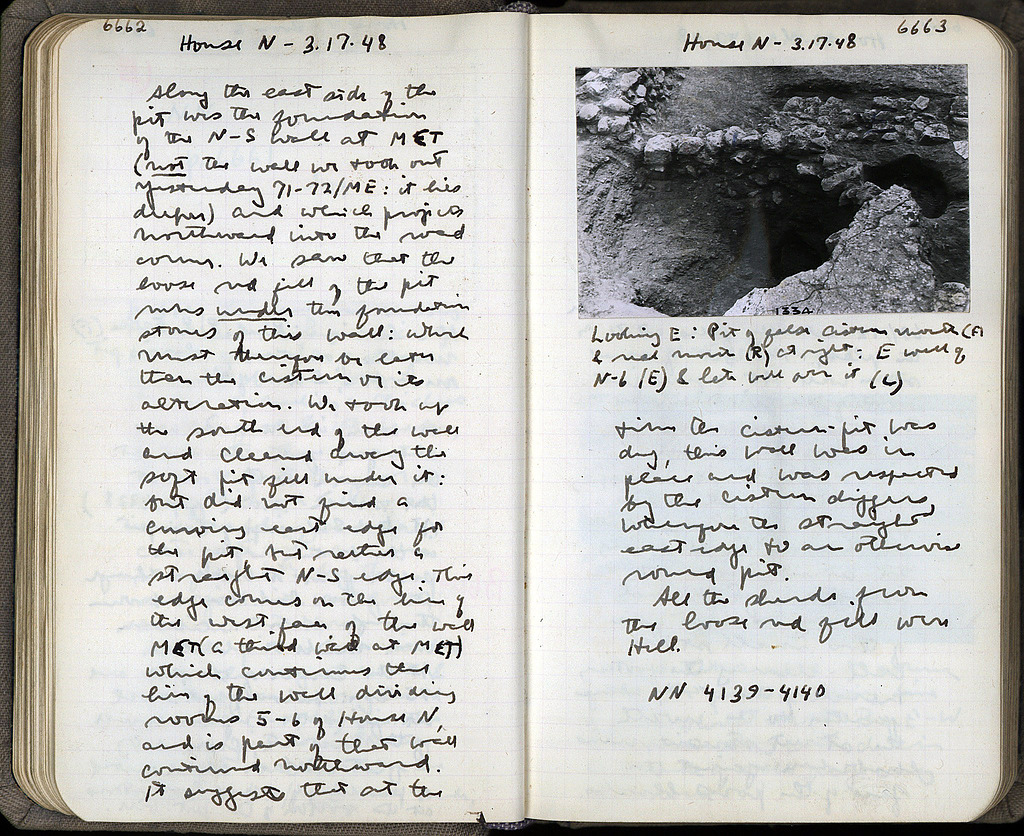 6662
House N - 3.17.48
Along the east side of the
pit was the foundation
of the N-S wall at MET
(not the wall we took out
yesterday 71-72/ME: it lies
deeper) and which projects
northward into the road
corner. We saw that the
loose red fill of the pit
runs under the foundation
stones of this wall: which
must therefore be later
than the cistern or its
alteration. We took up
the south end of the wall
and cleared away the
soft pit fill under it:
but did not find a
curving east edge for
the pit but rather a
straight N-S edge. This
edge comes on the line of
the west face of the wall
MET (a third wall at MET)
which continues the
line of the wall dividing
rooms 5-6 of House N,
and is part of that wall
continued northward.
It suggests that at the
6663
House N - 3.17.48
133A
Looking E: Pit of false cistern mouth (E)
& real mouth (R) at right: E wall of
N-6 (E) & late wall over it (L)
time the cistern-pit was
dug, this wall was in
place and was respected
by the cistern diggers
wherefore the straight
east edge to an otherwise
round pit.
All the sherds from
the loose red fill were
Hell.
NN 4139-4140